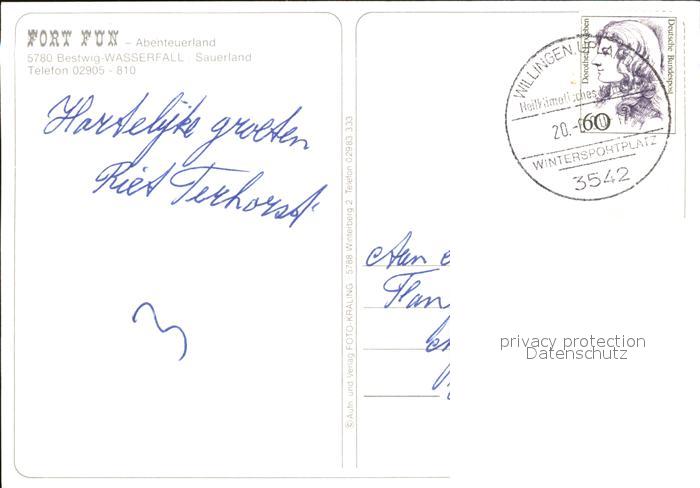 FORT FUN – Abenteuerland
5780 Bestwig-WASSERFALL Sauerland
Telefon 02905 - 810
Hartelijke groeten
Riet Terhorst
3
© Aufn. und Verlag FOTO-KRÄLING 5788 Winterberg 2 Telefon 02983 333
WILLINGEN, UPLAND
Heilklimatisches
20.
WINTERSPORTPLATZ
3542
Dorothea Erxleben
Deutsche Bundespost
60
Aan
privacy protection
Datenschutz